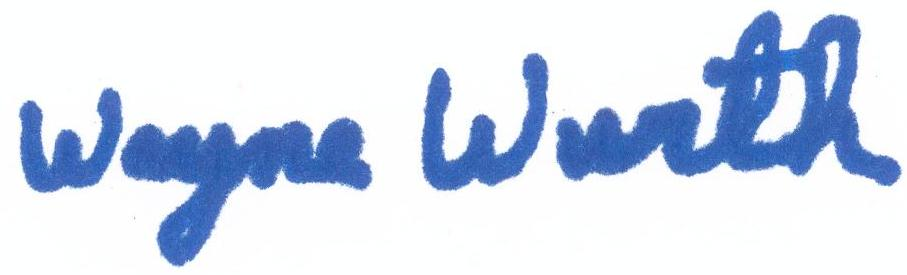 Wayne Wurth